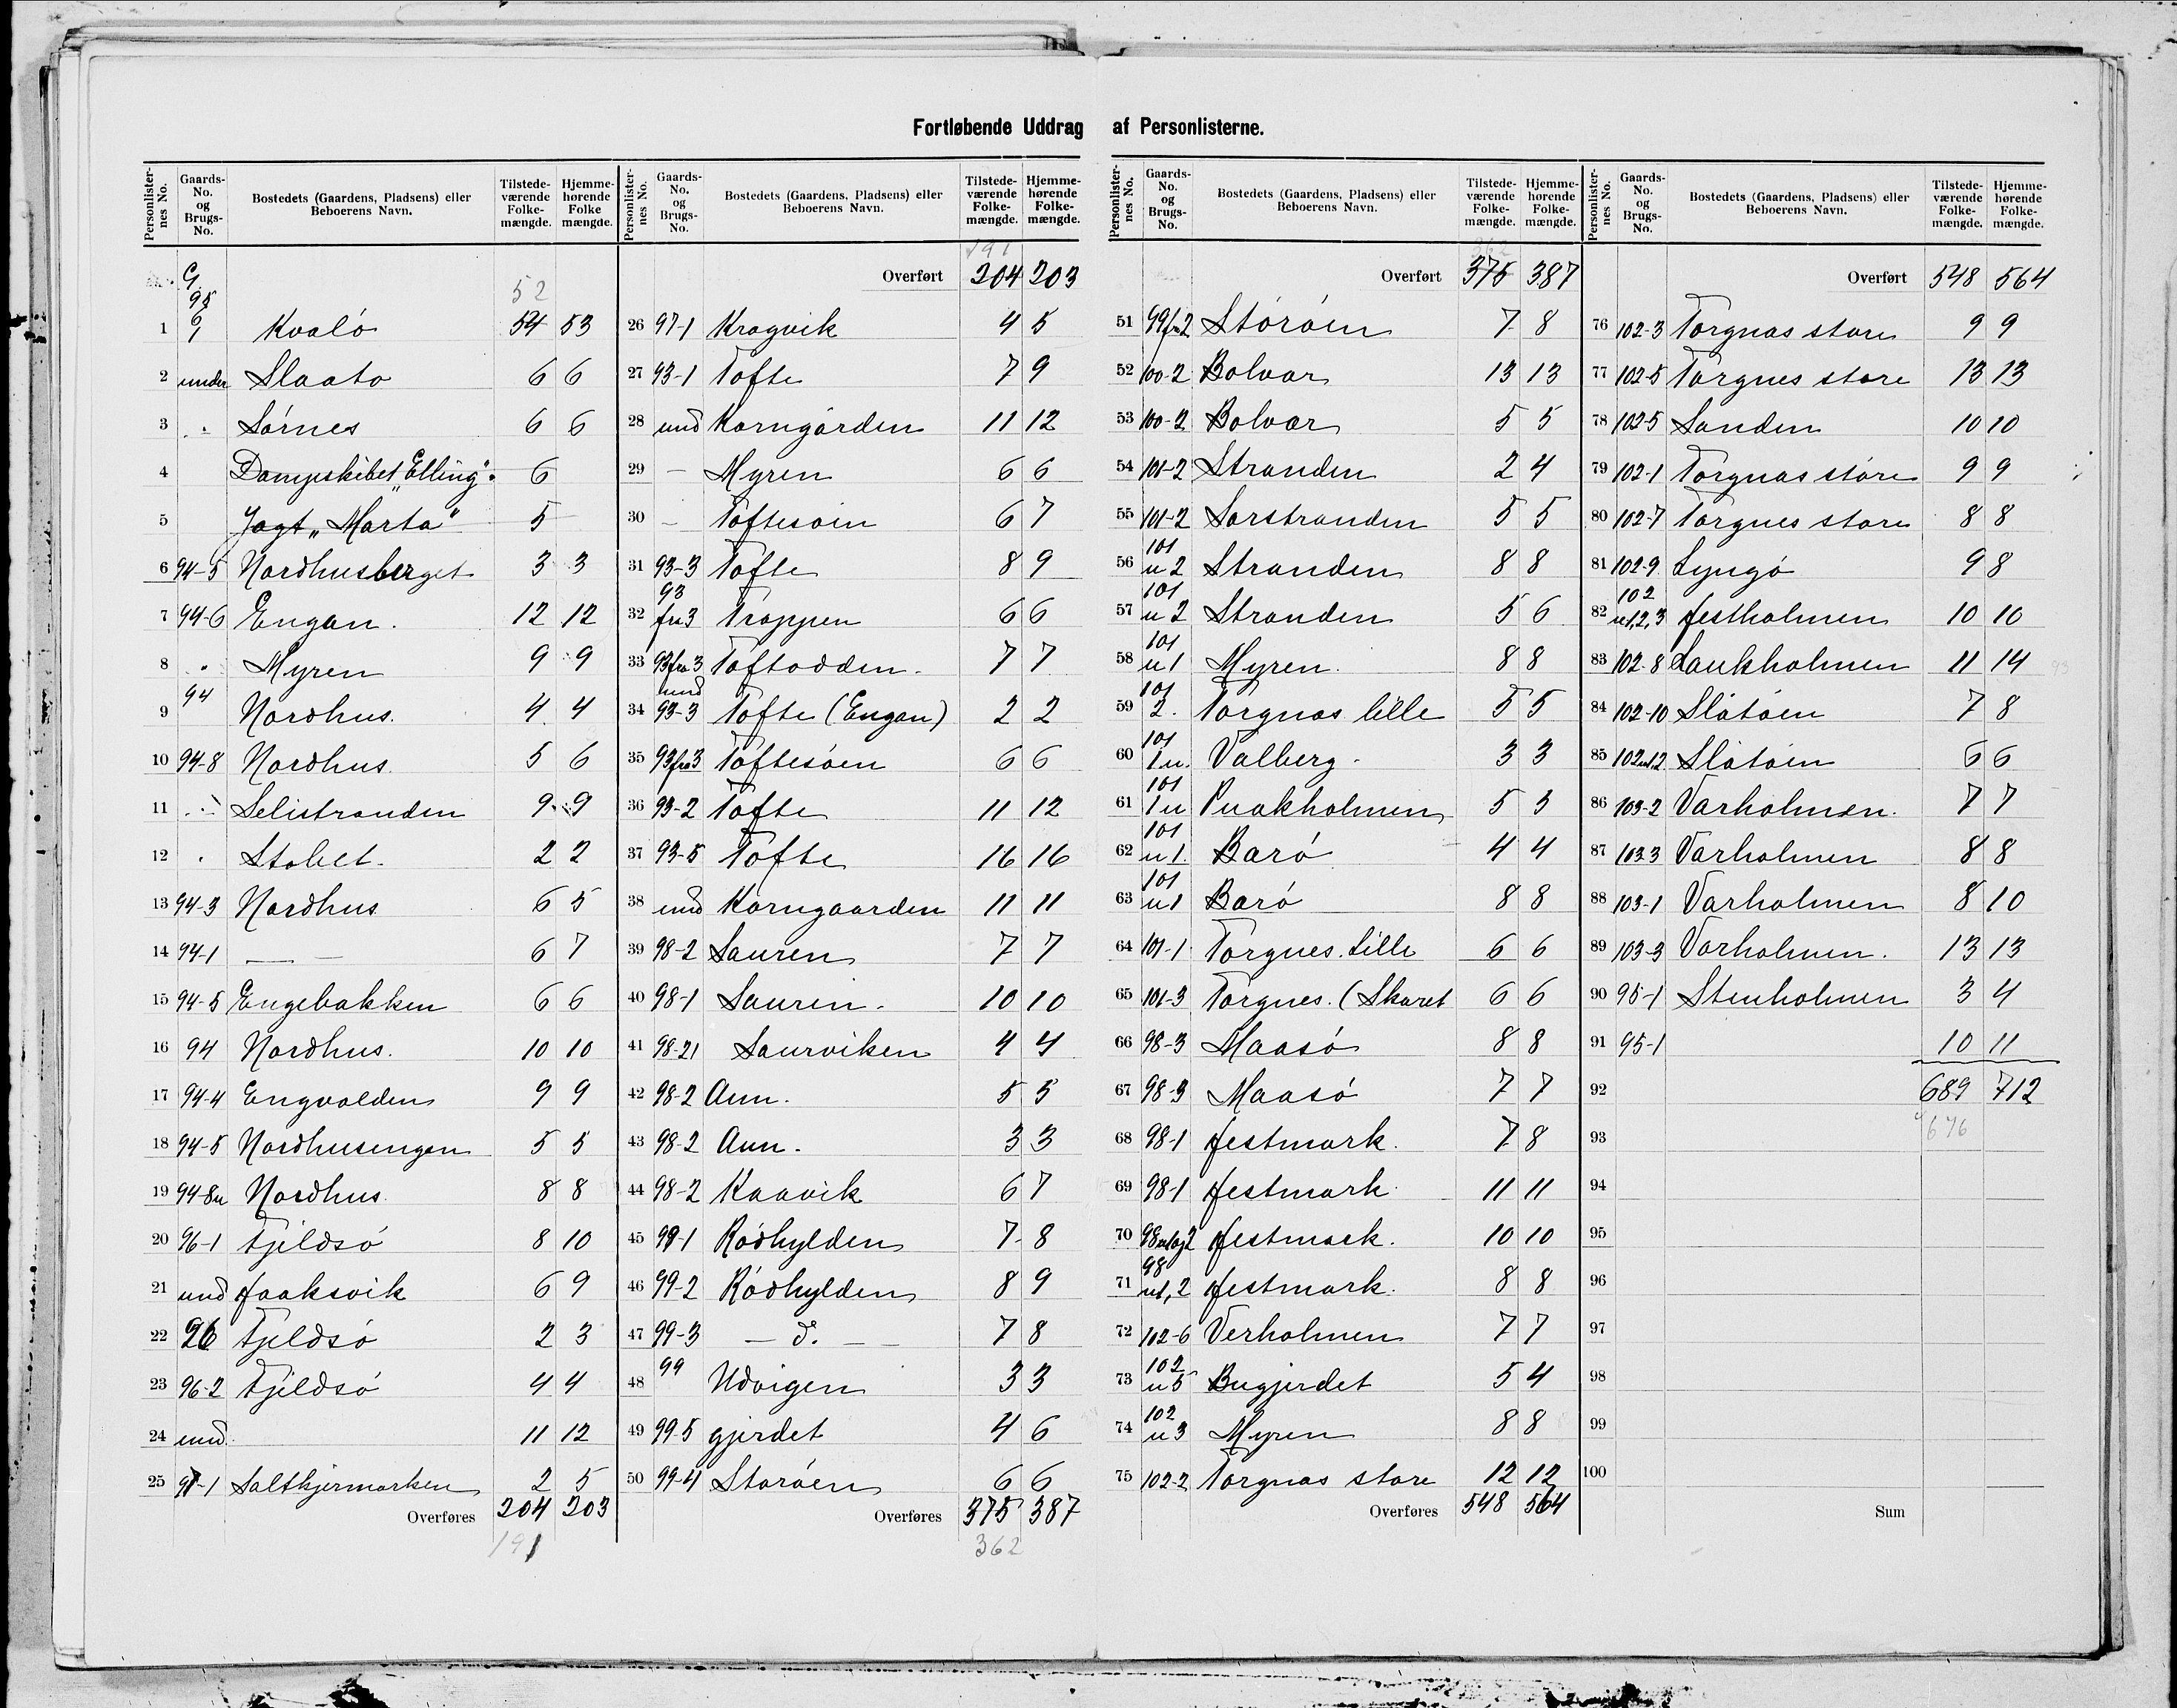 Fortløbende Uddrag af Personlisterne.
Personlisternes No. Gaards-No. og Brugs-No. Bostedets (Gaardens, Pladsens) eller Beboerens Navn. Tilstedeværende Folkemængde. Hjemmehørende Folkemængde.
G.
52
1 95 Kvalö 54 53
2 under Slaato 6 6
3 " Sörnes 6 6
4 Dampskibet „Elling" 6
5 Jagt „Marta" 5
6 94-5 Nordhusberget 3 3
7 94-6 Engan. 12 12
8 " Myren 9 9
9 94 Nordhus. 4 4
10 94-8 Nordhus 5 6
11 " Selistranden 9 9
12 " Stobet. 2 2
13 94-3 Nordhus 6 5
14 94-1 — — 6 7
15 94-5 Engebakken 6 6
16 94 Nordhus. 10 10
17 94-4 Engvolden 9 9
18 94-5 Nordhusengen 5 5
19 94-8u Nordhus 8 8
20 96-1 Fjeldsö 8 10
21 und Haaksvik 6 9
22 96 Fjeldsö 2 3
23 96-2 Fjeldsö 4 4
24 und. 11 12
25 97-1 Saltkjermarken 2 5
Overføres 204 203
191
Personlisternes No. Gaards-No. og Brugs-No. Bostedets (Gaardens, Pladsens) eller Beboerens Navn. Tilstedeværende Folkemængde. Hjemmehørende Folkemængde.
191
Overført 204 203
26 97-1 Kragvik 4 5
27 93-1 Tofte 7 9
28 und Korngården 11 12
29 — Myren 6 6
30 — Toftesöen 6 7
31 93-3 Tofte 8 9
32 93 fra3 Trappen 6 6
33 93fra3 Toftodden. 7 7
34 und 93-3 Tofte (Engan) 2 2
35 93fra3 Töftesöen 6 6
36 93-2 Tofte 11 12
37 93-5 Tofte 16 16
38 und Korngaarden 11 11
39 98-2 Sauren 7 7
40 98-1 Sauren. 10 10
41 98-21 Saurviken 4 4
42 98-2 Aun. 5 5
43 98-2 Aun. 3 3
44 98-2 Kaavik 6 7
45 99-1 Rödhylden 7 8
46 99-2 Rödhylden 8 9
47 99-3 — d. — 7 8
48 99 Udvigen 3 3
49 99-5 gjerdet 4 6
50 99-4 Storöen 6 6
Overføres 375 387
362
Personlisternes No. Gaards-No. og Brugs-No. Bostedets (Gaardens, Pladsens) eller Beboerens Navn. Tilstedeværende Folkemængde. Hjemmehørende Folkemængde.
362
Overført 375 387
51 Störöen 7 8
52 100-2 Bolvær 13 13
53 100-2 Bolvær 5 5
54 101-2 Stranden 2 4
55 101-2 Sorstranden 5 5
56 101 u2 Stranden 8 8
57 101 u2 Stranden 5 6
58 101 u1 Myren. 8 8
59 101 2. Torgnæs lille 5 5
60 101 1u. Valberg. 3 3
61 101 1u Puakholmen 5 5
62 101 u1. Barö 4 4
63 101 u1 Barö 8 8
64 101-1 Torgnes. Lille 6 6
65 101-3 Torgnes. (Skaret 6 6
66 98-3 Maasö 8 8
67 98-3 Maasö 7 7
68 98-1 Hestmark. 7 8
69 98-1 Hestmark 11 11
70 98u1og2 Hestmark. 10 10
71 98 u1,2 Hestmark. 8 8
72 102-6 Verholmen 7 7
73 102 u5 Bugjerdet 5 4
74 102 u3 Myren 8 8
75 102-2 Torgnæs store 12 12
Overføres 548 564
Personlisternes No. Gaards-No. og Brugs-No. Bostedets (Gaardens, Pladsens) eller Beboerens Navn. Tilstedeværende Folkemængde. Hjemmehørende Folkemængde.
Overført 548 564
76 102-3 Torgnæs store 9 9
77 102-5 Torgnes store 13 13
78 102-5 Sanden 10 10
79 102-1 Torgnæs store 9 9
80 102-7 Torgnes store 8 8
81 102-9 Lyngö 9 8
82 102 u1,2,3 Hestholmen 10 10
83 102-8 Laukholmen 11 14
84 102-10 Slåtöen 7 8
85 102u1,2 Slåtöen 6 6
86 103-2 Varholmen. 7 7
87 103-3 Varholmen 8 8
88 103-1 Varholmen 8 10
89 103-3 Varholmen. 13 13
90 95-1 Stenholmen 3 4
91 95-1 10 11
92 689 712
93 676
94
95
96
97
98
99
100
Sum